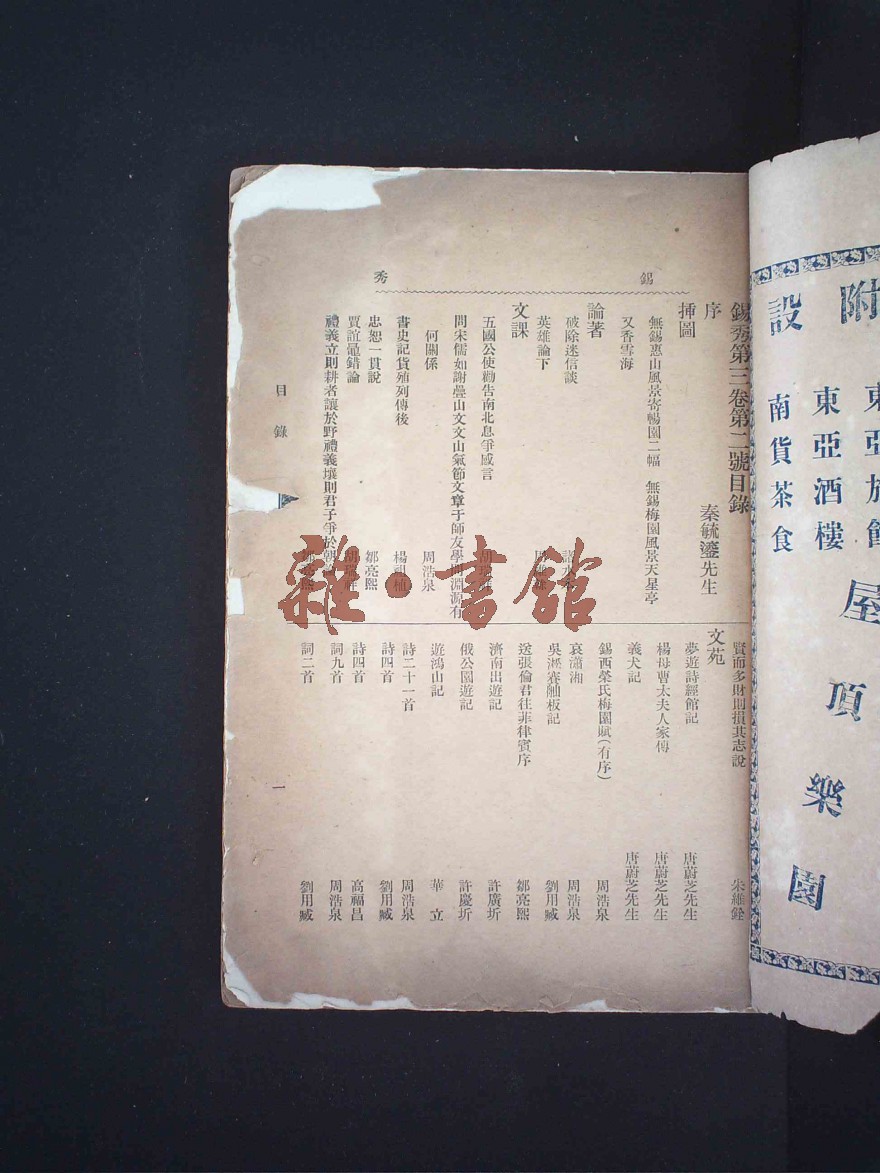 附設
東亞旅館
東亞酒樓
南貨茶食
屋頂樂園
錫秀
錫秀第三卷第二號目錄
序 秦毓鎏先生
插圖
無錫惠山風景寄暢園二幅 無錫梅園風景天星亭
又香雪海
論著
破除迷信談
英雄論下
文課
五國公使勸告南北息爭感言
問宋儒如謝疊山文文山氣節文章于師友學問淵源有
何關係 周浩泉
書史記貨殖列傳後 楊 植
忠恕一貫說 鄒亮熙
賈誼鼂錯論
禮義立則耕者讓於野禮義壞則君子爭於朝
賢而多財則損其志說 朱維銓
文苑
夢遊詩經館記 唐蔚芝先生
楊母曹太夫人家傳 唐蔚芝先生
義犬記 唐蔚芝先生
錫西榮氏梅園賦(有序) 周浩泉
哀瀟湘 周浩泉
吳淞賽舢板記 劉用臧
送張倫君往菲律賓序 鄒亮熙
濟南出遊記 許廣圻
俄公園遊記 許慶圻
遊鴻山記 華立
詩二十一首 周浩泉
詩四首 劉用臧
詩四首 高福昌
詞九首 周浩泉
詞二首 劉用臧
目錄
一
雜·書館